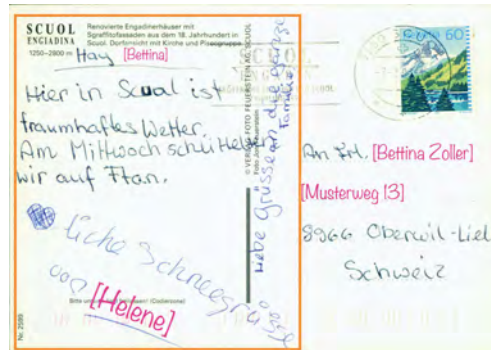 SCUOL
ENGIADINA
1250-2800 m
Renovierte Engadinerhäuser mit
Sgraffitofassaden aus dem 18. Jahrhundert in
Scuol. Dorfansicht mit Kirche und Pisocgruppe
Hay [Bettina]
Hier in Scual ist
traumhaftes Wetter.
Am Mittwoch
wir auf Ftan.
liche Schneegrüsse
von [Helene]
Liebe Grüsse an die ganze
Familie
© VERLAG FOTO FEUERSTEIN AG, SCUOL
Foto Feuerstein
Nr. 2599
SCUOL
60
An Frl. [Bettina Zoller]
[Musterweg 13]
8966 Oberwil-Liel
Schweiz